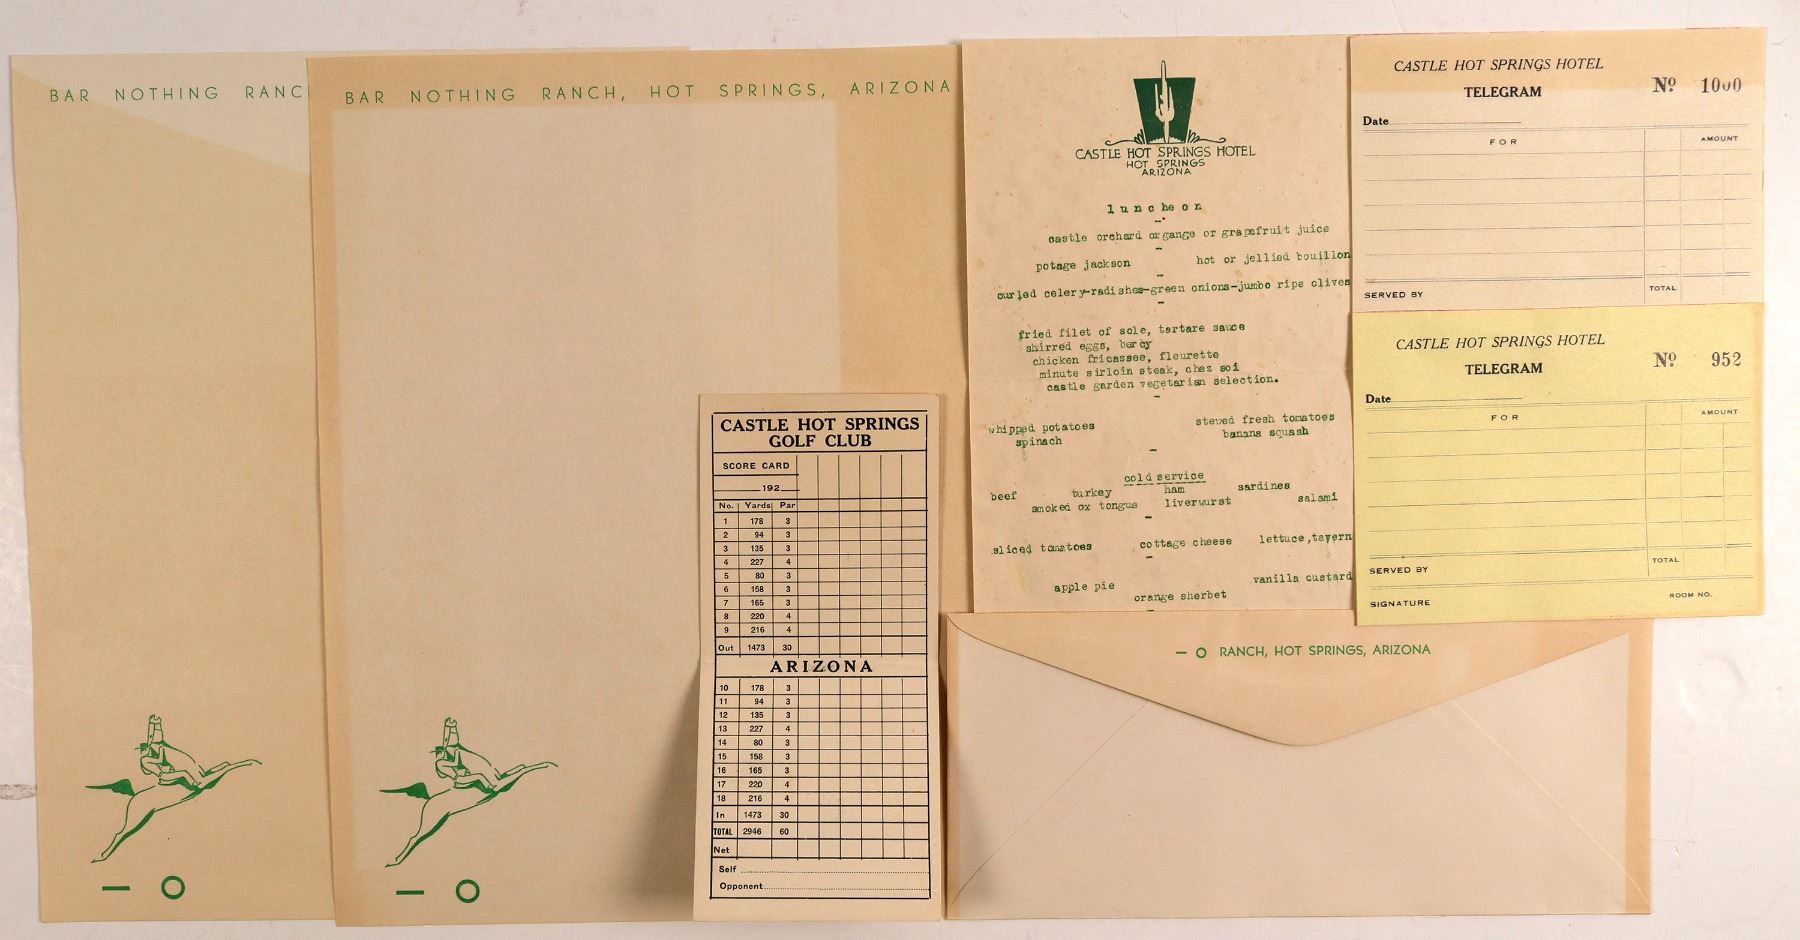 BAR NOTHING RANC
— O
BAR NOTHING RANCH, HOT SPRINGS, ARIZONA
— O
CASTLE HOT SPRINGS
GOLF CLUB
SCORE CARD
____192__
No. Yards Par
1 178 3
2 94 3
3 135 3
4 227 4
5 80 3
6 158 3
7 165 3
8 220 4
9 216 4
Out 1473 30
ARIZONA
10 178 3
11 94 3
12 135 3
13 227 4
14 80 3
15 158 3
16 165 3
17 220 4
18 216 4
In 1473 30
TOTAL 2946 60
Net
Self
Opponent
CASTLE HOT SPRINGS HOTEL
HOT SPRINGS
ARIZONA
luncheon
castle orchard organge or grapefruit juice
potage jackson hot or jellied bouillon
curled celery-radishes-green onions-jumbo ripe olives
fried filet of sole, tartare sauce
shirred eggs, bercy
chicken fricassee, fleurette
minute sirloin steak, chez soi
castle garden vegetarian selection.
whipped potatoes stewed fresh tomatoes
spinach banana squash
cold service
beef turkey ham sardines
smoked ox tongus liverwurst salami
sliced tomatoes cottage cheese lettuce,tavern
apple pie vanilla custard
orange sherbet
CASTLE HOT SPRINGS HOTEL
TELEGRAM No. 1000
Date
FOR AMOUNT
TOTAL
SERVED BY
CASTLE HOT SPRINGS HOTEL
TELEGRAM No. 952
Date
FOR AMOUNT
TOTAL
SERVED BY
SIGNATURE ROOM NO.
— O RANCH, HOT SPRINGS, ARIZONA